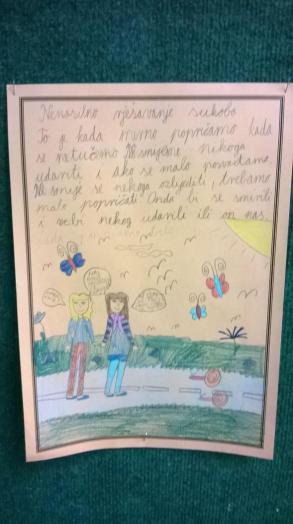 Nenasilno rješavanje sukoba
To je kada mirno popričamo kada
se netučemo. Ne smijemo nikoga
udariti i ako se malo posvađamo.
Ne smije se nekoga ozlijediti, trebamo
malo popričati. Onda bi se smirili
i nebi nekog udarili ili on nas.